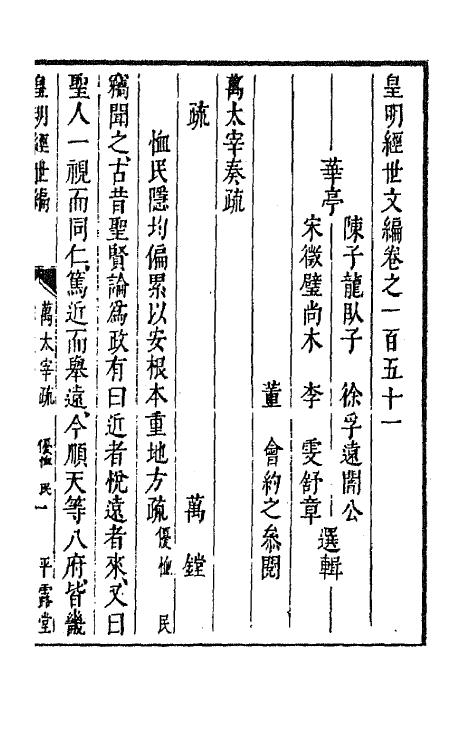 皇明經世文編卷之一百五十一
華亭
陳子龍臥子 徐孚遠闇公
宋徵璧尚木 李 雯舒章
選輯
董 會約之叅閱
萬太宰奏疏
疏 萬 鏜
恤民隱均偏累以安根本重地方疏 優恤民
竊聞之、古昔聖賢論爲政有曰近者悅遠者來、又曰
聖人一視而同仁、篤近而舉遠、今順天等八府、皆畿
皇明經世編 萬太宰疏 優恤民 一 平露堂